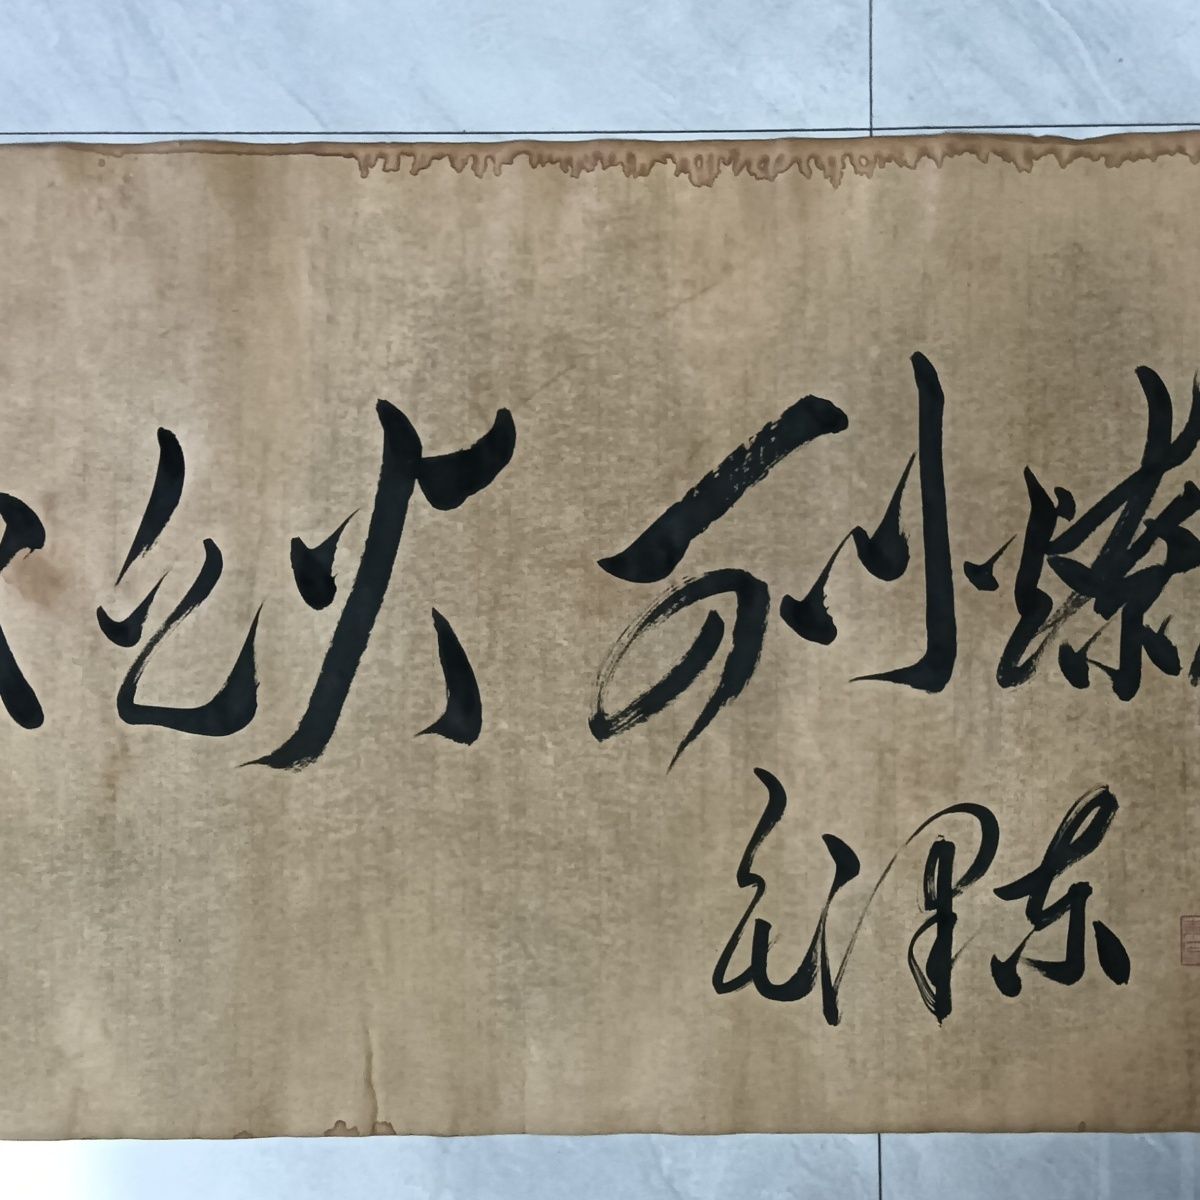 之火可以燎
毛泽东